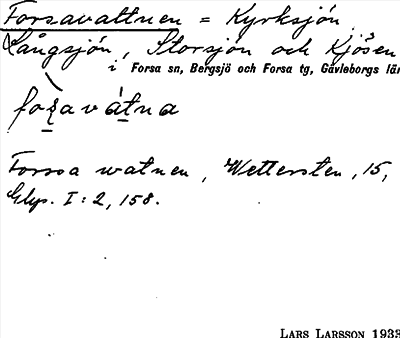 Forsavattnen = Kyrksjön,
Långsjön, Storsjön och Kjösen
i Forsa sn, Bergsjö och Forsa tg, Gävleborgs län
Forsoa watnen, Wettersten, 15,
Glys. I:2, 158.
LARS LARSSON 1933